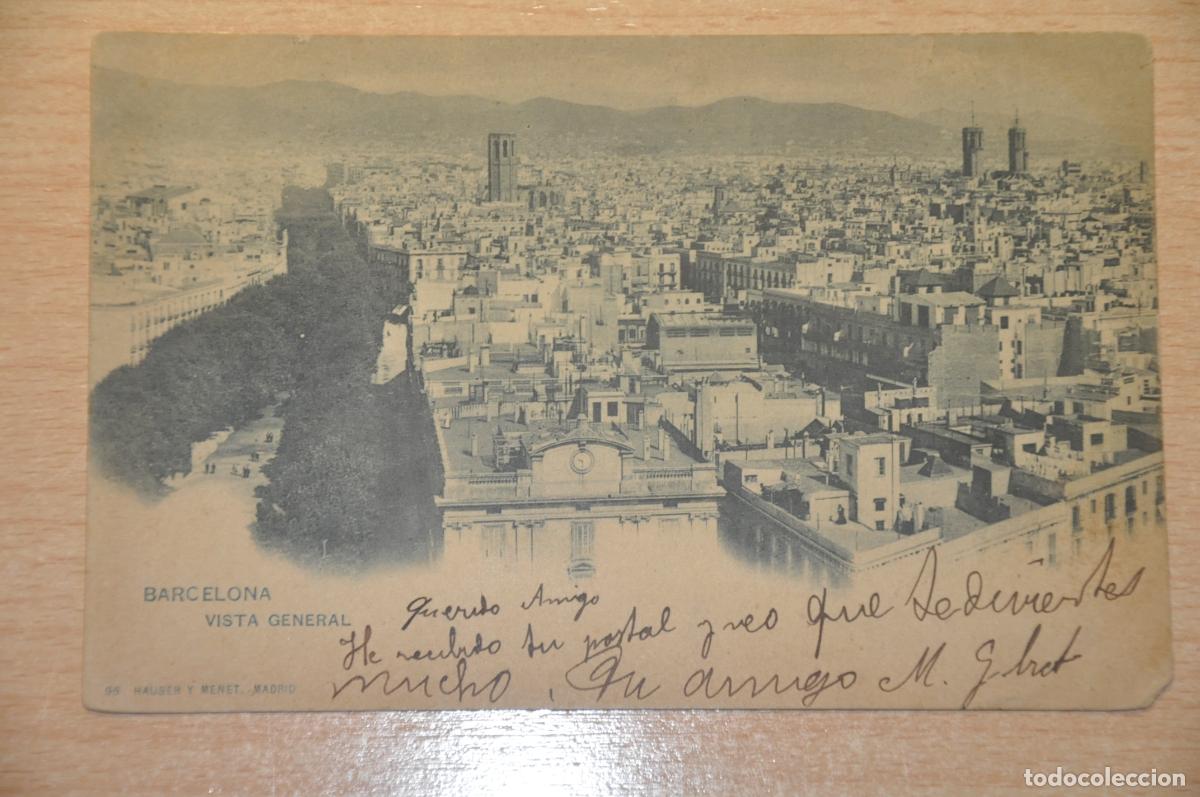 BARCELONA
VISTA GENERAL
Querido Amigo
He recibido tu postal y veo que te diviertes
mucho, Tu amigo M. G
96 HAUSER Y MENET.-MADRID
todocoleccion